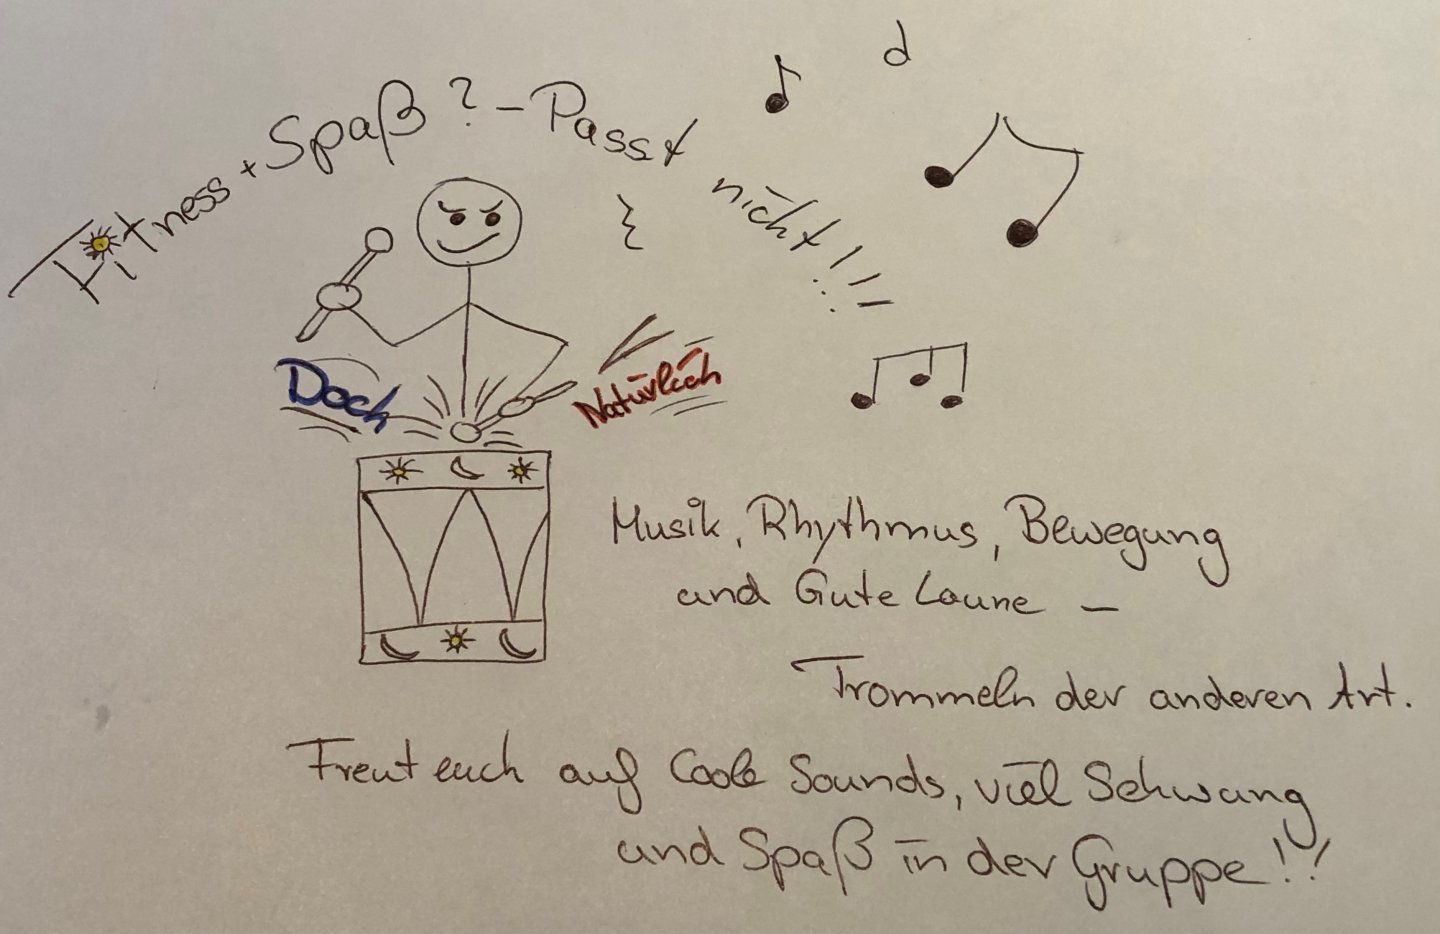 Fitness + Spaß? - Passt nicht!!!
Doch
Natürlich
Musik, Rhythmus, Bewegung
und Gute Laune -
Trommeln der anderen Art.
Freut euch auf Coole Sounds, viel Schwung
und Spaß in der Gruppe!!